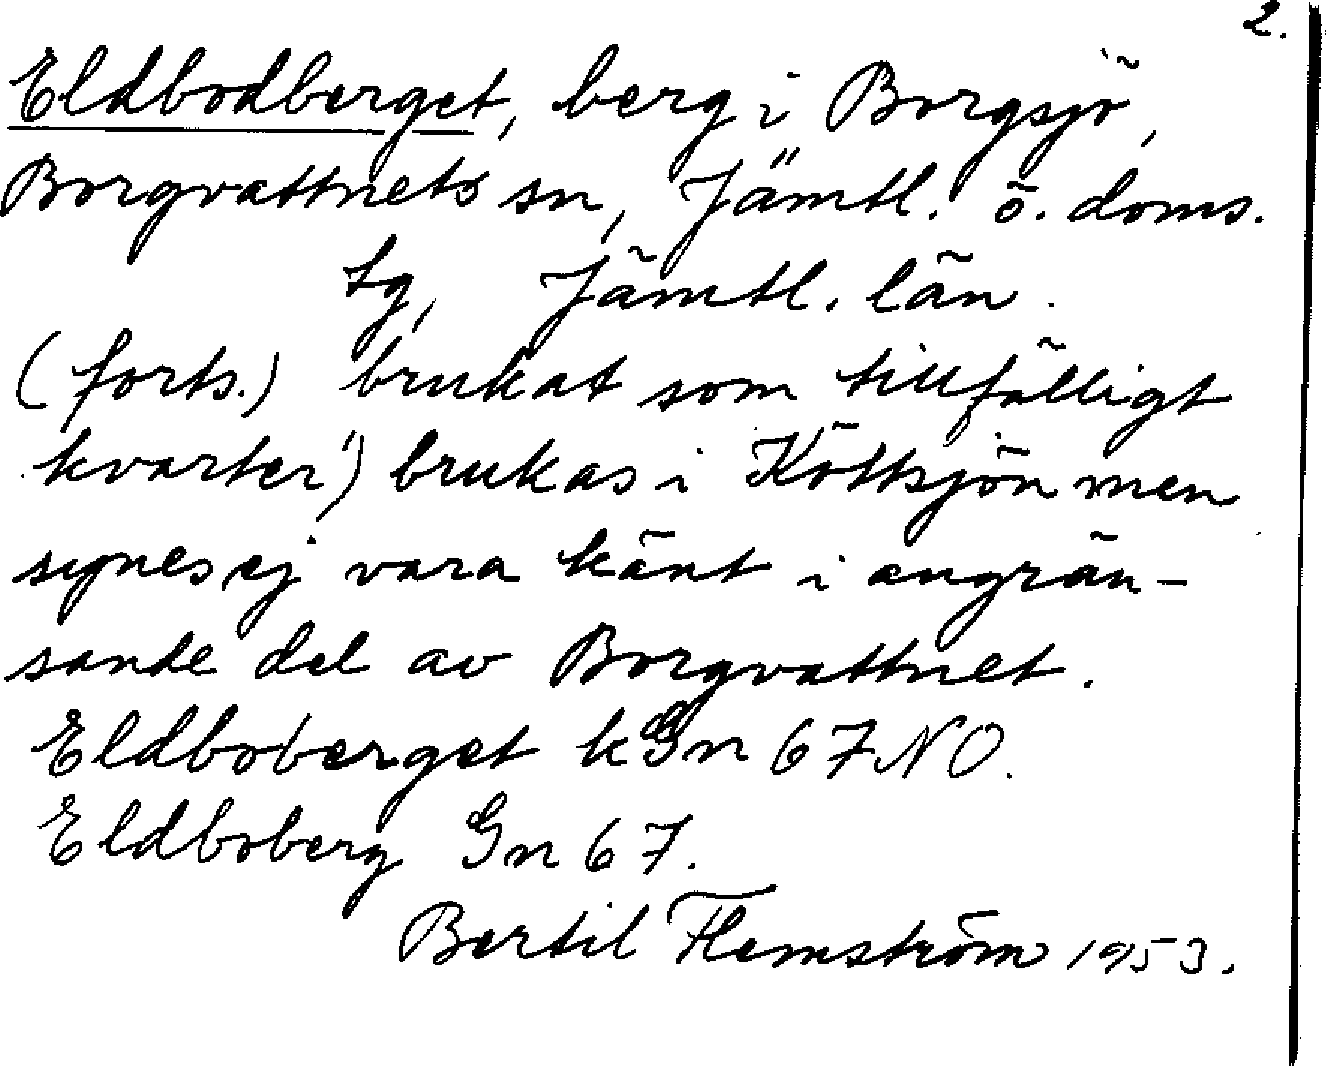 2.
Eldbodberget, berg i Borgsjö,
Borgvattnets sn, Jämtl. ö. doms.
tg, Jämtl. län.
(forts.) brukat som tillfälligt
kvarter') brukas i Köttsjön men
synes ej vara känt i angrän-
sande del av Borgvattnet.
Eldboberget kGn 67 NO.
Eldboberg Gn 67.
Bertil Flemström 1953.